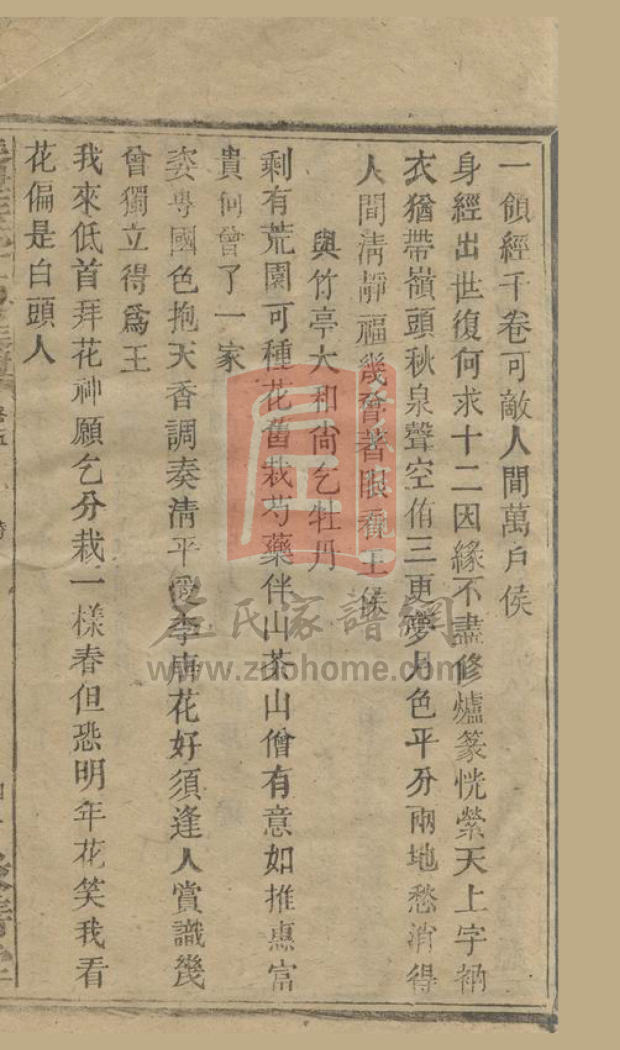 一領經千卷可敵人間萬戶侯
身經出世復何求十二因緣不盡修爐篆恍縈天上字衲
衣猶帶嶺頭秋泉聲空侑三更夢月色平分兩地愁消得
人間淸靜福幾曾著眼看王侯
與竹亭大和尙乞牡丹
剩有荒園可種花舊栽芍藥伴山茶山僧有意如推惠富
貴何曾了一家
姿專國色抱天香調奏淸平愛李唐花好須逢人賞識幾
曾獨立得爲王
我來低首拜花神願乞分栽一樣春但恐明年花笑我看
花偏是白頭人
左氏家譜網
www.zuohome.com